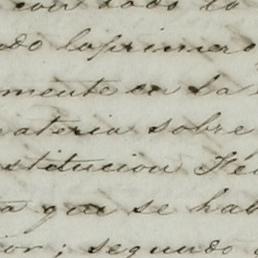 con todo lo
do lo primero
mente en la
materia sobre
stitucion Fé
a que se hab
ior; segundo